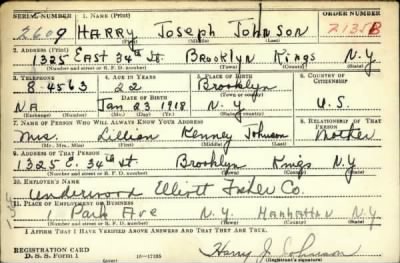 SERIAL NUMBER 1. NAME (Print) ORDER NUMBER
2609 HARRY Joseph Johnson 2135B
(First) (Middle) (Last)
2. ADDRESS (Print)
1325 East 34th St. Brooklyn Kings N.Y.
(Number and street or R. F. D. number) (Town) (County) (State)
3. TELEPHONE 4. AGE IN YEARS 5. PLACE OF BIRTH 6. COUNTRY OF CITIZENSHIP
8-4563 22 Brooklyn
DATE OF BIRTH (Town or county)
NA Jan 23 1918 N.Y. U.S.
(Exchange) (Number) (Mo.) (Day) (Yr.) (State or country)
7. NAME OF PERSON WHO WILL ALWAYS KNOW YOUR ADDRESS 8. RELATIONSHIP OF THAT PERSON
Mrs. Lillian Kenney Johnson Mother
(Mr., Mrs., Miss) (First) (Middle) (Last)
9. ADDRESS OF THAT PERSON
1325 E. 34th St Brooklyn Kings N.Y.
(Number and street or R. F. D. number) (Town) (County) (State)
10. EMPLOYER'S NAME
Underwood Elliott Fisher Co.
11. PLACE OF EMPLOYMENT OR BUSINESS
1 Park Ave N.Y. Manhattan N.Y.
(Number and street or R. F. D. number) (Town) (County) (State)
I AFFIRM THAT I HAVE VERIFIED ABOVE ANSWERS AND THAT THEY ARE TRUE.
REGISTRATION CARD
D. S. S. Form 1 16-17105 Harry J. Johnson
(Registrant's signature)